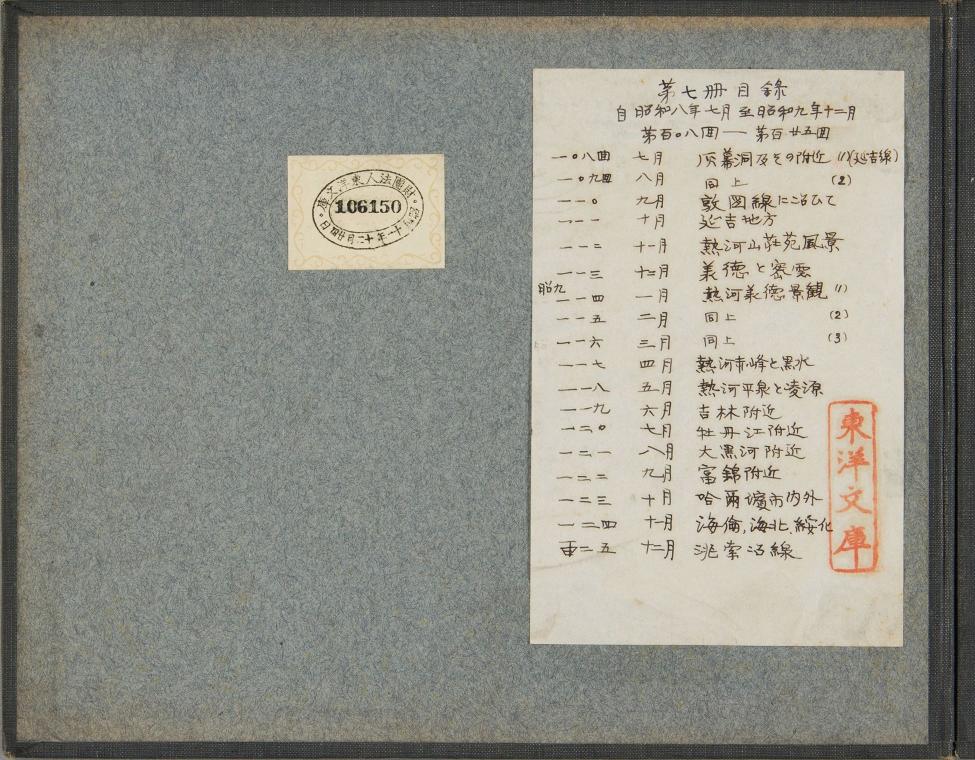 財團法人東洋文庫
106150
昭和十一年十二月廿日
第七册目錄
自昭和八年七月至昭和九年十二月
第百〇八回 — 第百廿五回
一〇八回 七月 灰幕洞及その附近 (1)(延吉線)
一〇九回 八月 同上 (2)
一一〇 九月 敦図線に沿ひて
一一一 十月 延吉地方
一一二 十一月 熱河山莊苑風景
一一三 十二月 義德と密雲
昭九
一一四 一月 熱河義德景観 (1)
一一五 二月 同上 (2)
一一六 三月 同上 (3)
一一七 四月 熱河赤峰と黒水
一一八 五月 熱河平泉と凌源
一一九 六月 吉林附近
一二〇 七月 牡丹江附近
一二一 八月 大黒河附近
一二二 九月 富錦附近
一二三 十月 哈爾濱市内外
一二四 十一月 海倫,海北,綏化
百二五 十二月 洮索沿線
東洋文庫